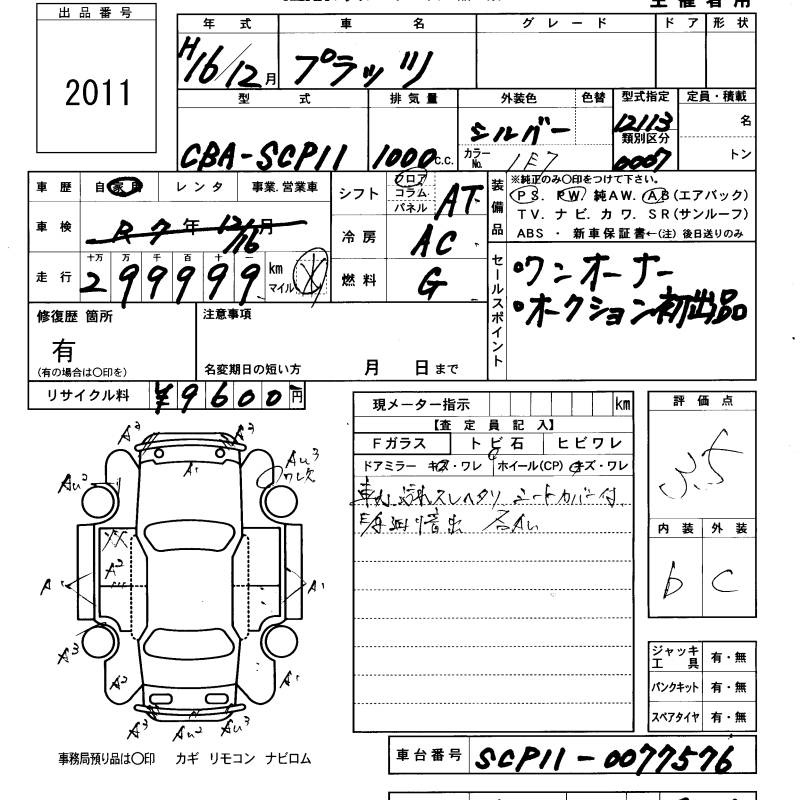 出品番号
2011
年式 車名 グレード ドア 形状
H16/12月 プラッツ
型式 排気量 外装色 色替 型式指定 定員・積載
CBA-SCP11 1000c.c. シルバー 12113 名
カラーNo. 1E7 類別区分 0007 トン
車歴 自家用 レンタ 事業.営業車
車検 R7年12/16月
走行 十万 万 千 百 十 一
299999 km マイル
シフト フロア コラム パネル AT
冷房 AC
燃料 G
装備品 ※純正のみ○印をつけて下さい。
PS. PW. 純AW. AB(エアバック)
TV. ナビ. カワ. SR(サンルーフ)
ABS ・ 新車保証書←(注) 後日送りのみ
セールスポイント
・ワンオーナー
・オークション初出品
修復歴 箇所
有
(有の場合は○印を)
注意事項
名変期日の短い方 月 日まで
リサイクル料 ¥9600円
現メーター指示 km
【査定員記入】
Fガラス トビ石 ヒビワレ
ドアミラー キズ・ワレ ホイール(CP) キズ・ワレ
シートカバー付
評価点
3.5
内装 外装
b C
A3 A3
A1
AU3
ワレ欠
AU2
A2
A1 A1
A3
A2 A1
AU3 AU3
ジャッキ工具 有・無
パンクキット 有・無
スペアタイヤ 有・無
事務局預り品は○印 カギ リモコン ナビロム
車台番号 SCP11-0077576